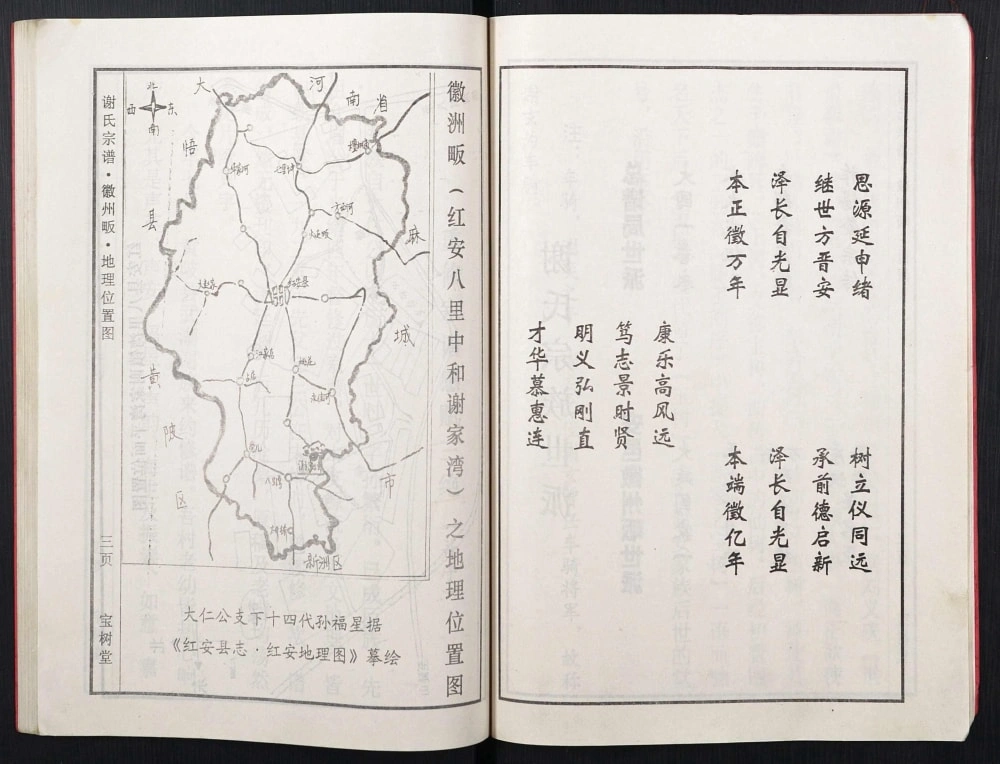 思源延申绪
继世方晋安
泽长自光显
本正徵万年
树立仪同远
承前德启新
泽长自光显
本端徵亿年
康乐高风远
笃志景时贤
明义弘刚直
才华慕惠连
徽洲畈（红安八里中和谢家湾）之地理位置图
北
西 东
南
大悟县
河南省
麻城市
黄陂区
新洲区
红安县
大仁公支下十四代孙福星据
《红安县志·红安地理图》摹绘
谢氏宗谱·徽州畈·地理位置图
三页
宝树堂